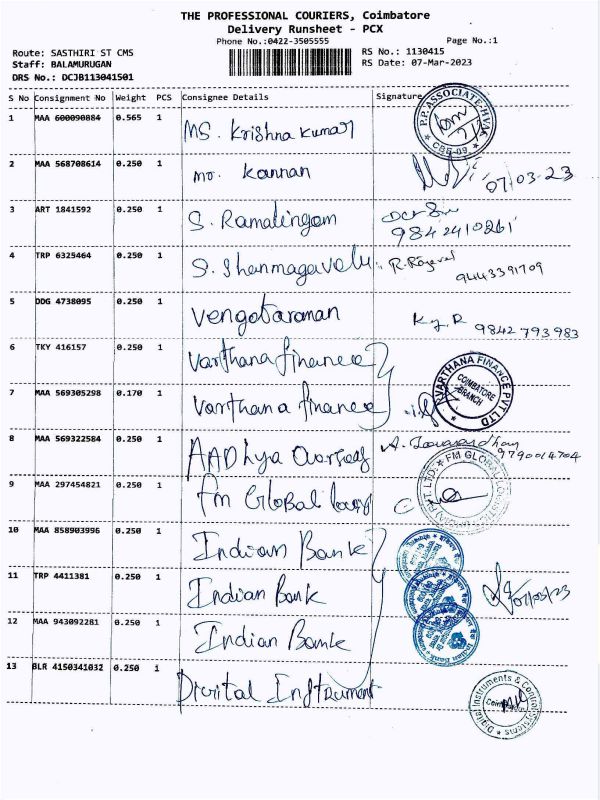 THE PROFESSIONAL COURIERS, Coimbatore
Delivery Runsheet - PCX
Phone No.:0422-3505555 Page No.:1
Route: SASTHIRI ST CMS RS No.: 1130415
Staff: BALAMURUGAN RS Date: 07-Mar-2023
DRS No.: DCJB113041501
S No Consignment No Weight PCS Consignee Details Signature
1 MAA 600090884 0.565 1 MS. Krishna Kumar P.P. ASSOCIATE-HVAC CBE-09
2 MAA 568708614 0.250 1 mr. Kannan 07/03-23
3 ART 1841592 0.250 1 S. Ramalingam 9842410261
4 TRP 6325464 0.250 1 S. Shanmagavalu R. 9443391709
5 DDG 4738095 0.250 1 Vengataraman 9842793983
6 TKY 416157 0.250 1 Varthana finance VARTHANA FINANCE PVT LTD COIMBATORE BRANCH
7 MAA 569305298 0.170 1 Varthana finance
8 MAA 569322584 0.250 1 AADhya Overseas A. 9790014704
9 MAA 297454821 0.250 1 fm Global FM GLOBAL LOGISTICS PVT. LTD
10 MAA 858903996 0.250 1 Indian Bank
11 TRP 4411381 0.250 1 Indian Bank 07/03/23
12 MAA 943092281 0.250 1 Indian Bank Indian Bank
13 BLR 4150341032 0.250 1 Digital Instrument Digital Instruments & Control Systems Coimbatore